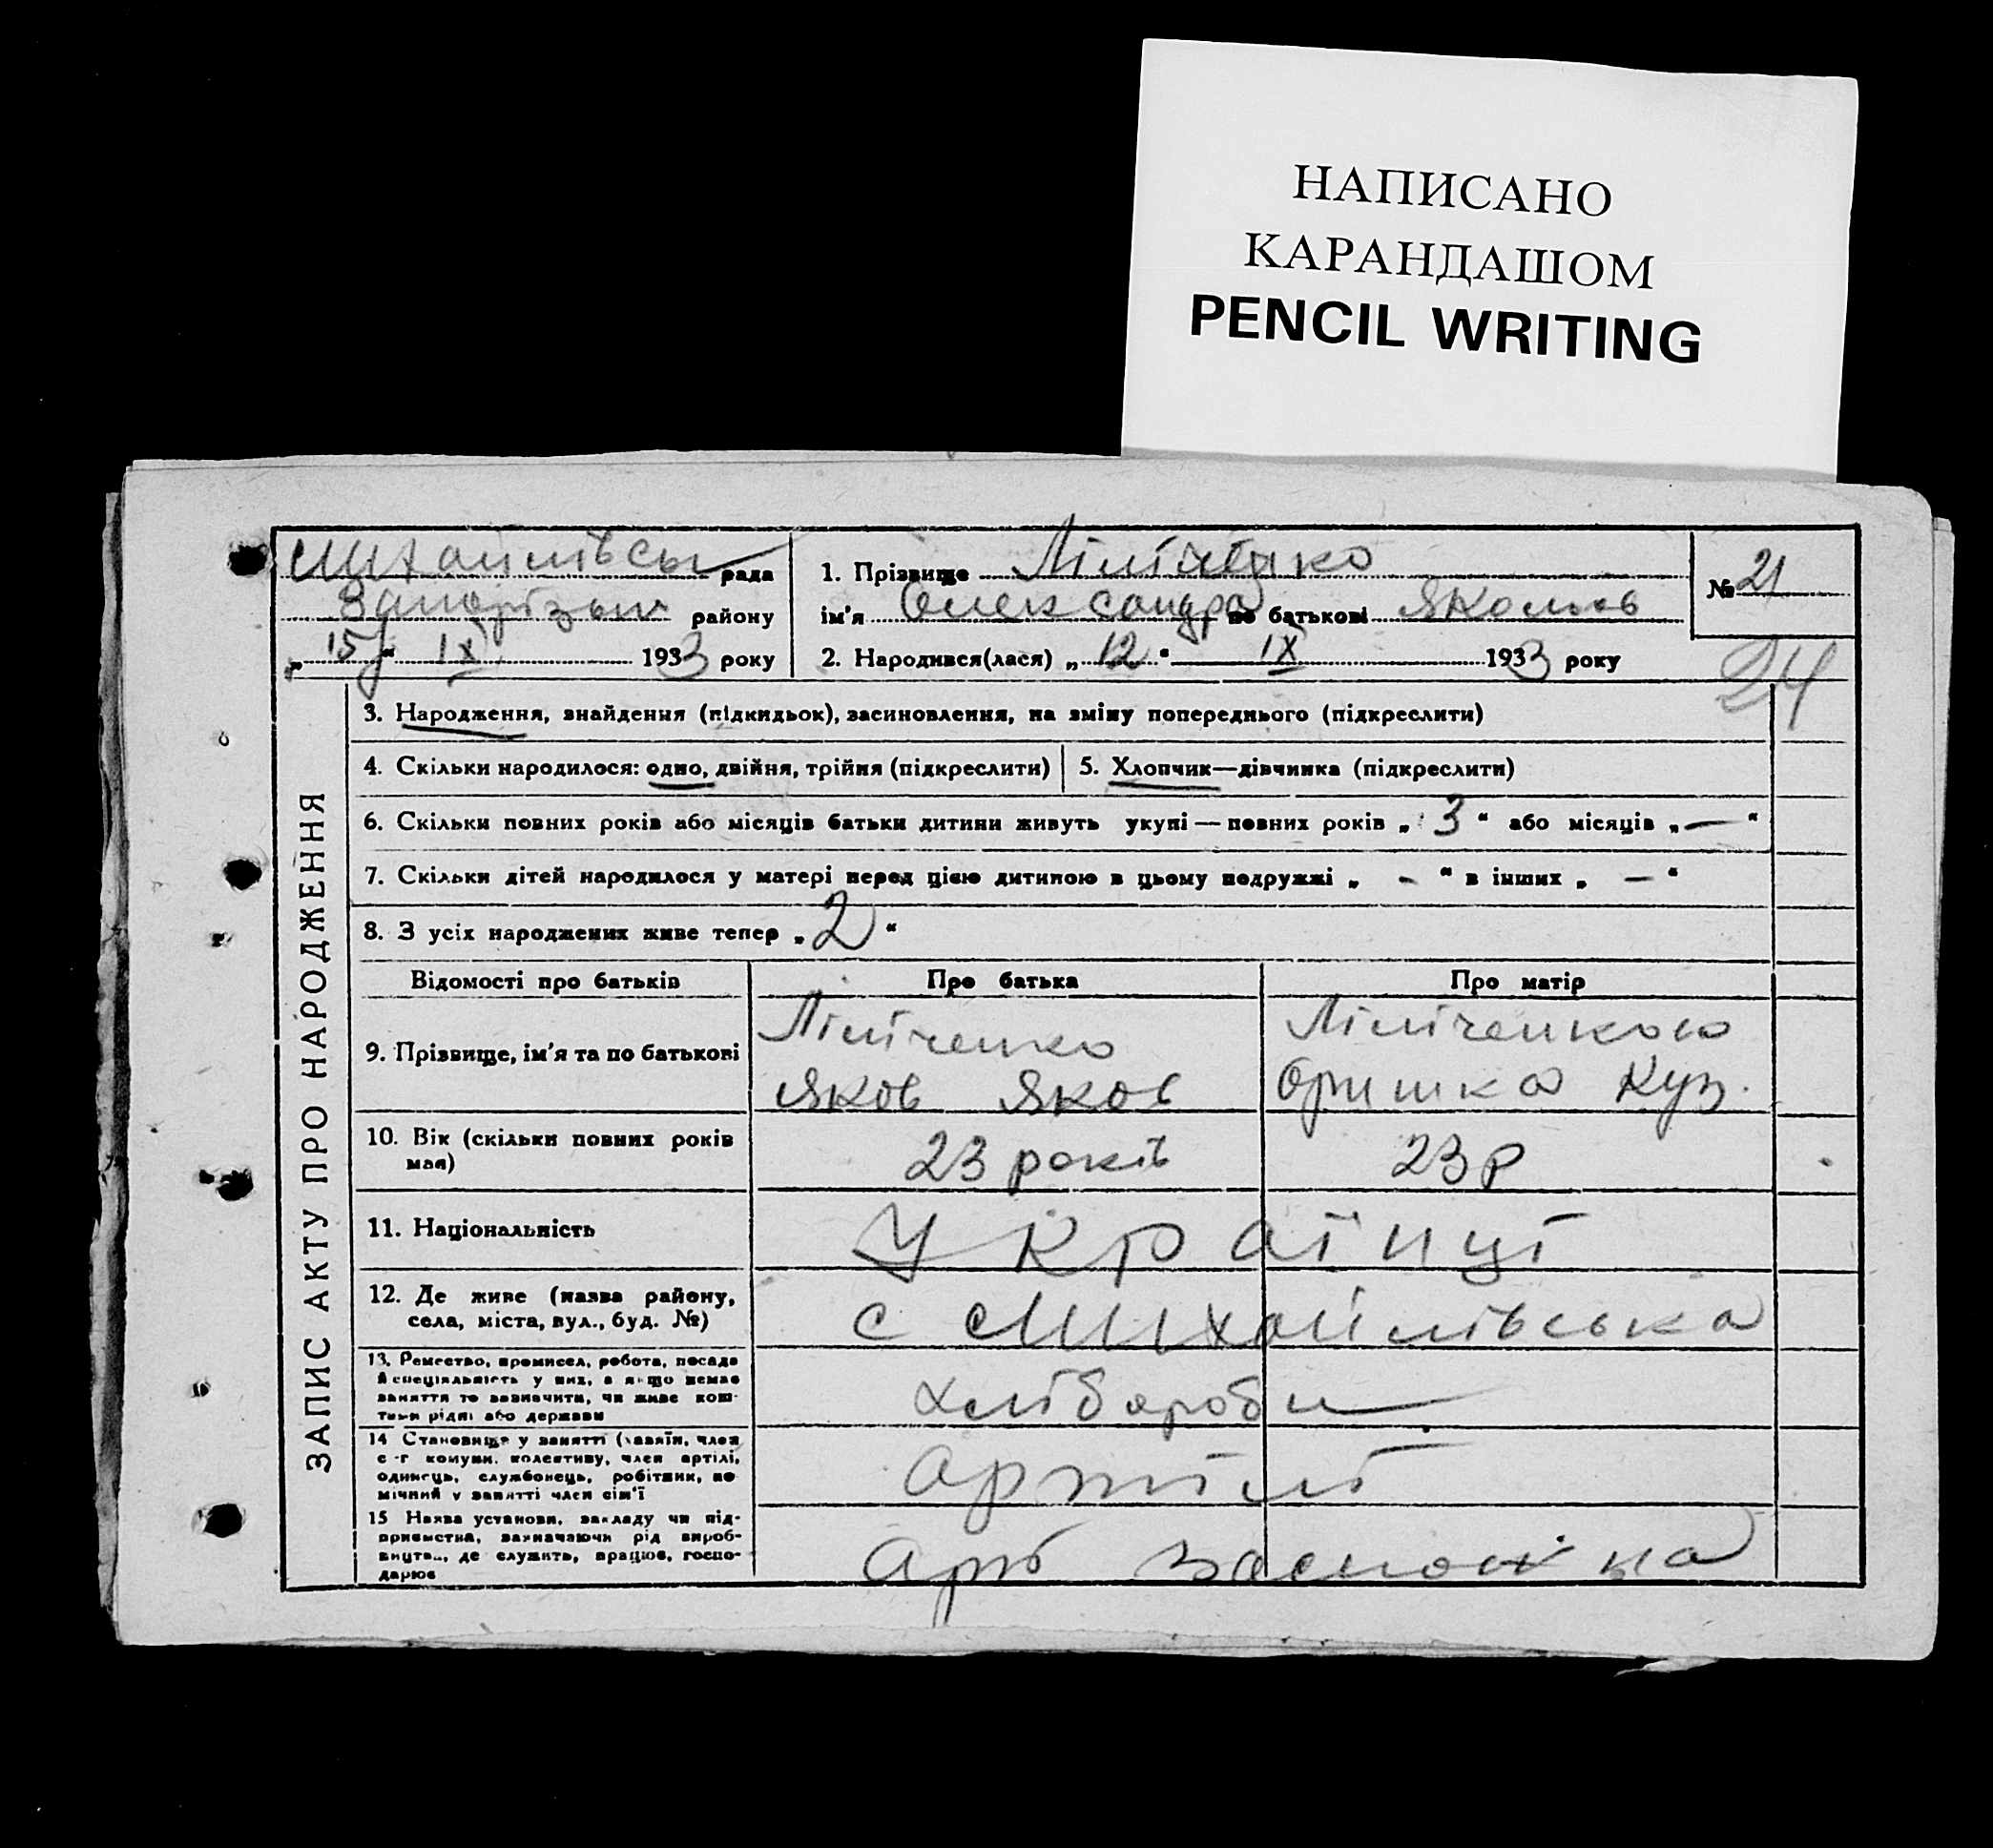 НАПИСАНО
КАРАНДАШОМ
PENCIL WRITING
Михайлівськ рада
Запорізьк району
„15“ IX 1933 року
1. Прізвище Ліпіченко
ім'я Олександр по батькові Яковлев
2. Народився(лася) „12“ IX 1933 року
№ 21
24
ЗАПИС АКТУ ПРО НАРОДЖЕННЯ
3. Народження, знайдення (підкидьок), засиновлення, на зміну попереднього (підкреслити)
4. Скільки народилося: одно, двійня, трійня (підкреслити)
5. Хлопчик—дівчинка (підкреслити)
6. Скільки повних років або місяців батьки дитини живуть укупі — повних років „3“ або місяців „—“
7. Скільки дітей народилося у матері перед цією дитиною в цьому подружжі „-“ в інших „—“
8. З усіх народжених живе тепер „2“
Відомості про батьків
Про батька
Про матір
9. Прізвище, ім'я та по батькові
Ліпіченко
Яков Яков
Ліпіченкою
Оришка Куз.
10. Вік (скільки повних років
має)
23 років
23 р
11. Національність
Українці
12. Де живе (назва району,
села, міста, вул., буд. №)
с Михайлівська
13. Ремество, промисел, робота, посада
й спеціяльність у них, а якщо немає
заняття то зазначити, чи живе кош-
тами рідні або держави
хлібороби
14 Становище у занятті (хазяїн, член
с-г комуни, колективу, член артілі,
одинець, службонець, робітник, по-
мічний у занятті член сім'ї
Артілі
15 Назва установи, закладу чи під-
приємства, зазначаючи рід вироб-
ництва, де служить, працює, госпо-
дарює
Арт